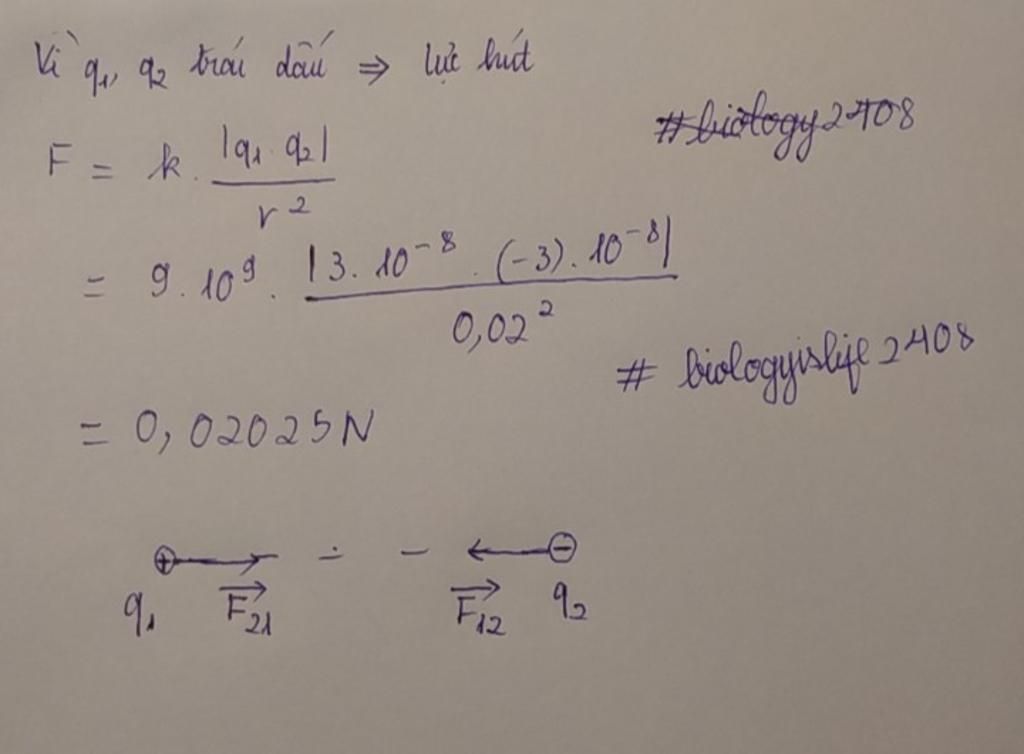 Vì q1, q2 trái dấu ⇒ lực hút
#biology2408
F = k. |q1. q2| / r²
= 9.10⁹. |3.10⁻⁸.(-3).10⁻⁸| / 0,02²
# biologyislife2408
= 0,02025N
⊕ ⊖
q1 F21 F12 q2